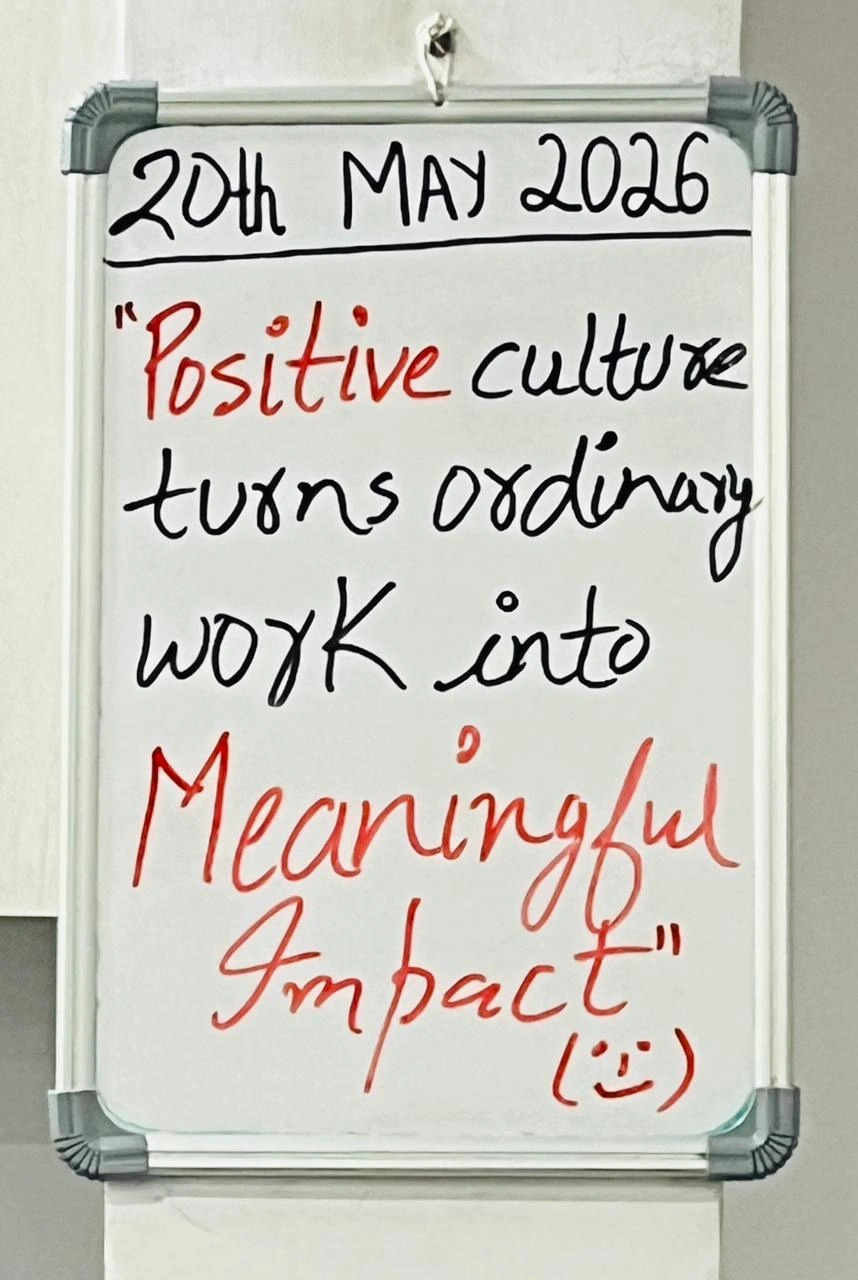 20th MAY 2026
"Positive culture
turns ordinary
work into
Meaningful
Impact"